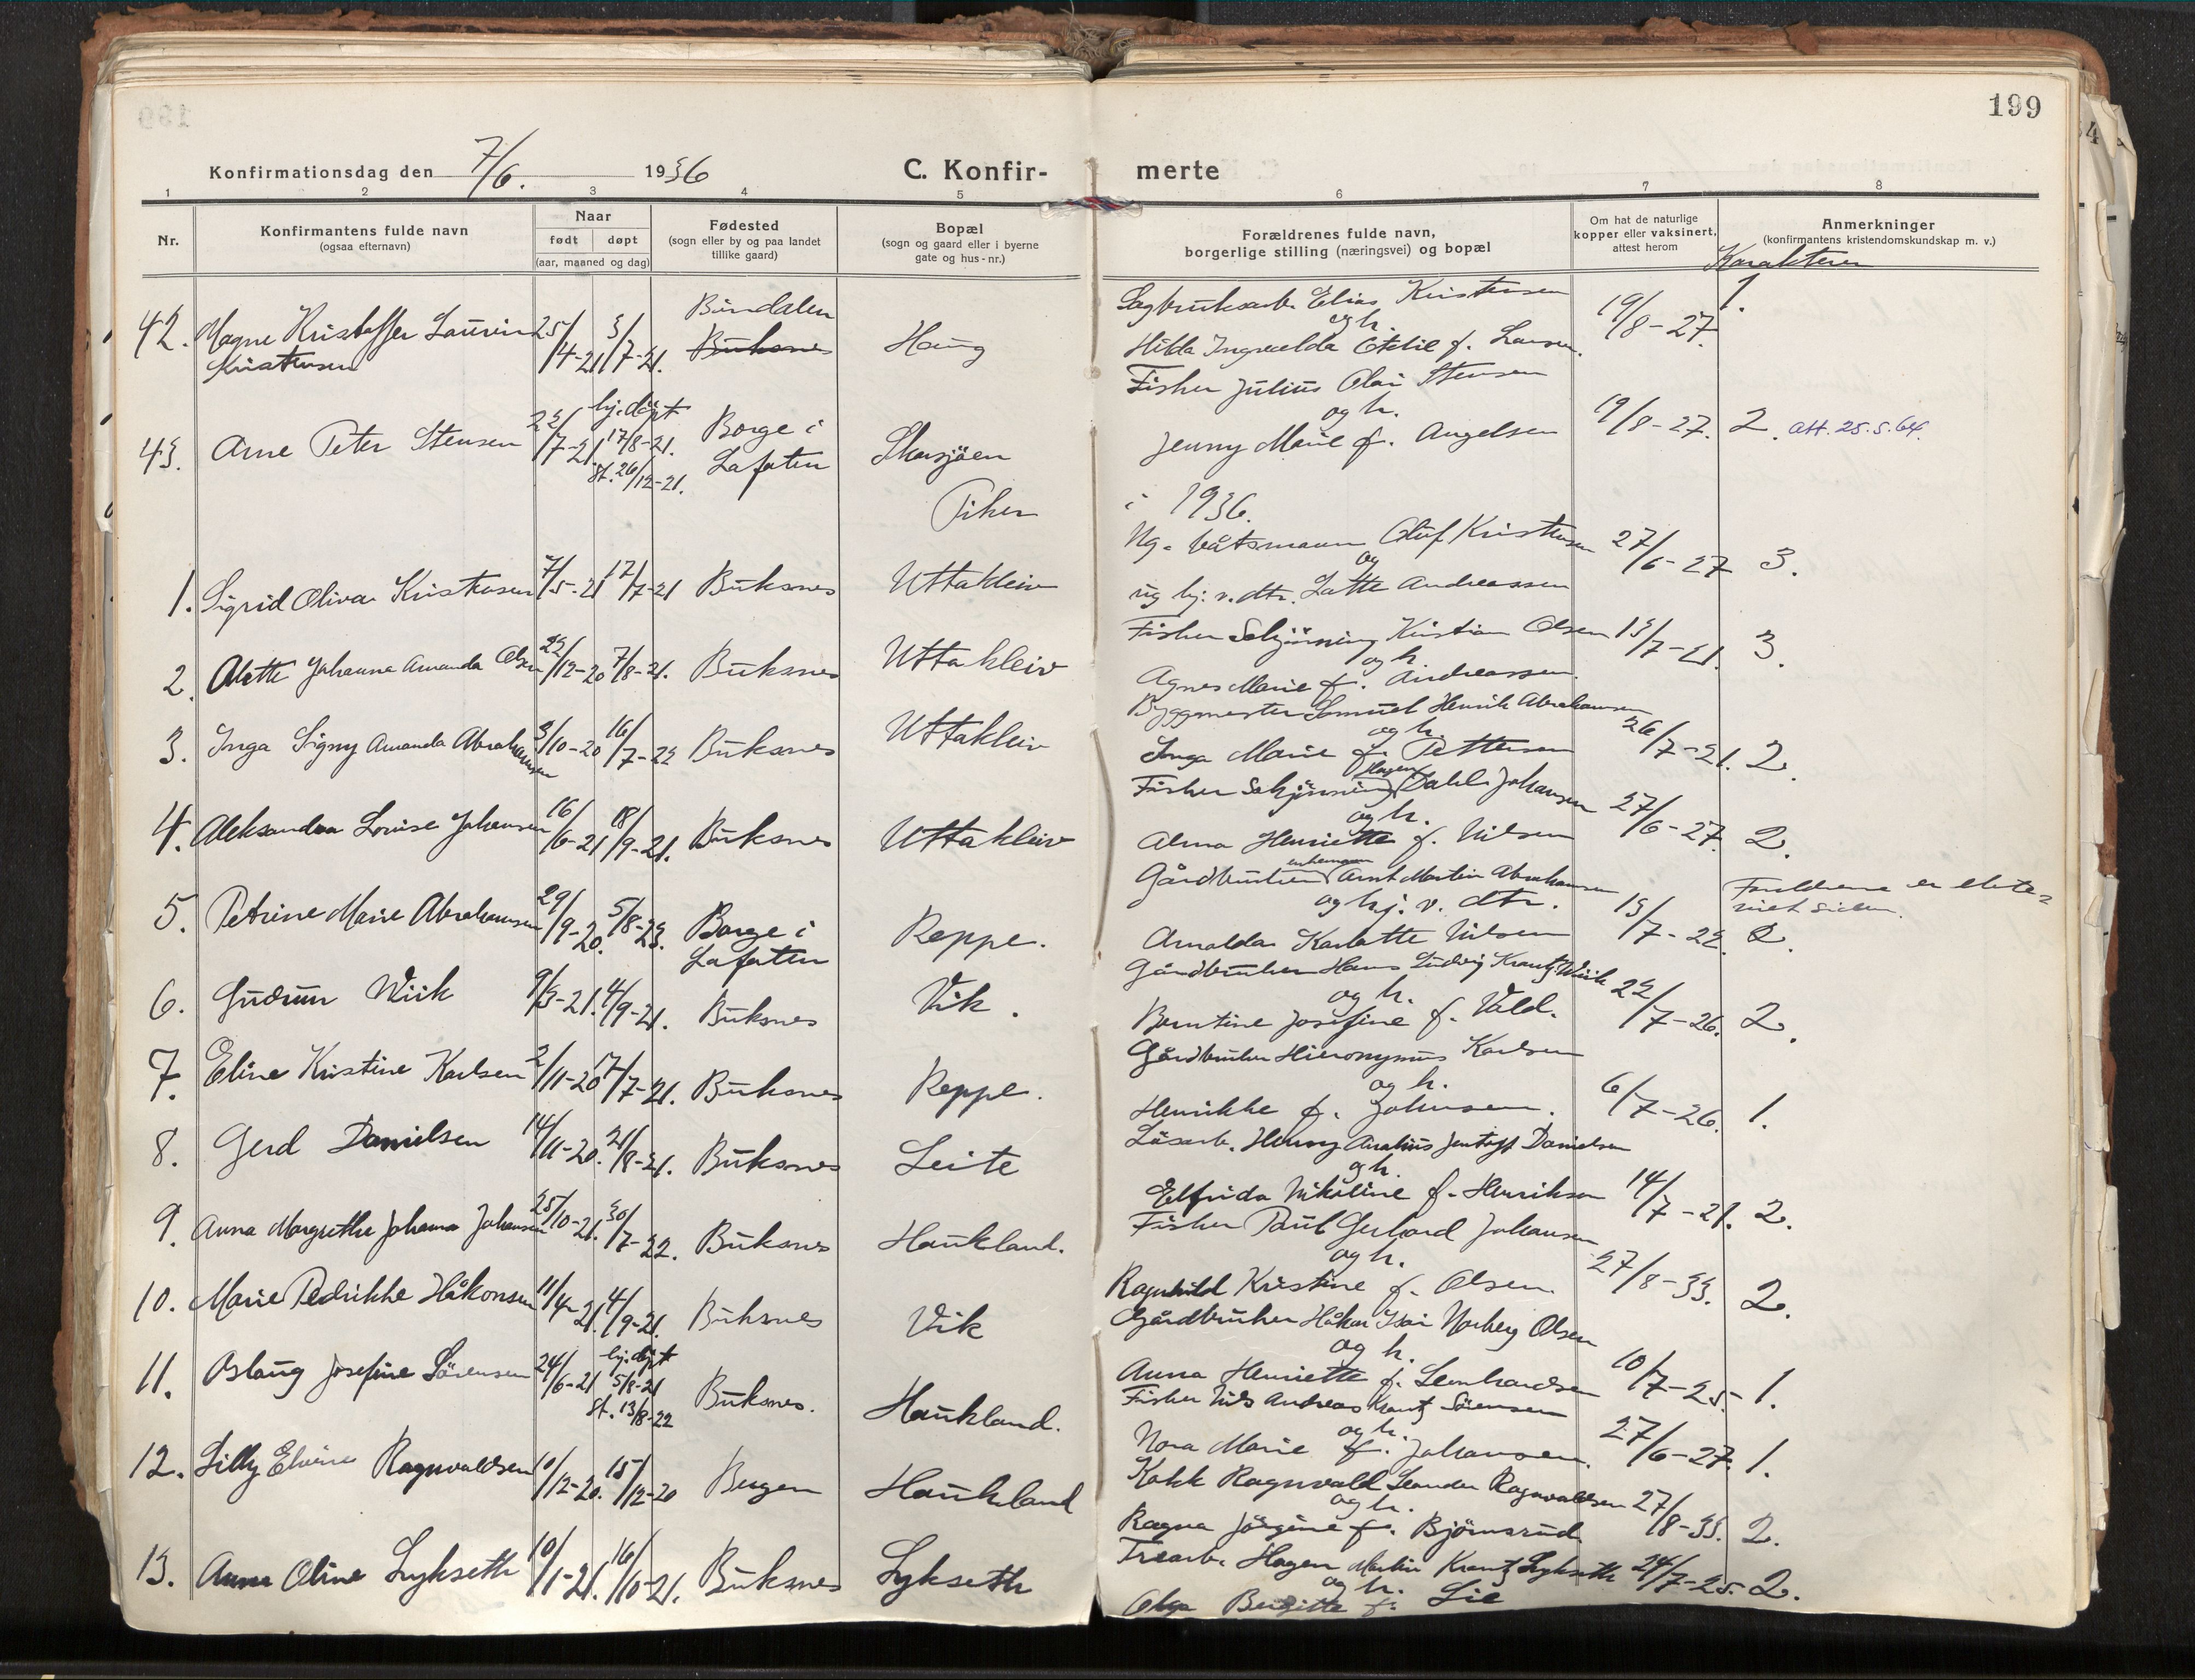 199
Konfirmationsdag den 7/6. 1936 C. Konfir- merte
1 2 3 4 5 6 7 8
Nr.
Konfirmantens fulde navn
(ogsaa efternavn)
Naar
født døpt
(aar, maaned og dag)
Fødested
(sogn eller by og paa landet
tillike gaard)
Bopæl
(sogn og gaard eller i byerne
gate og hus-nr.)
Forældrenes fulde navn,
borgerlige stilling (næringsvei) og bopæl
Om hat de naturlige
kopper eller vaksinert,
attest herom
Anmerkninger
(konfirmantens kristendomskundskap m. v.)
Karakteren
42. Magne Kristoffer Laurin Kristensen 25/4-21 3/7-21. Bindalen Buksnes Haug
Sagbruksarb. Elias Kristensen
og h.
Hilda Ingvalda Otelie f. Larsen.
19/8-27. 1.
43. Arne Peter Stensen 22/7-21. hj. døpt 17/8-21. St. 26/12-21. Borge i Lofoten Skarsjöen
Fisker Julius Olai Stensen
og h.
Jenny Marie f. Angelsen
19/8-27. 2. att. 25.5.64.
Piker i 1936.
1. Sigrid Oliva Kristensen 7/5-21 17/7-21 Buksnes Uttakleiv
Ug. båtsmann Oluf Kristensen
og
ug hj. v. dtr. Lotte Andreassen
27/6-27 3.
2. Alette Johanna Amanda Olsen 22/12-20 7/8-21. Buksnes Uttakleiv
Fisker Schjönning Kristian Olsen
og h.
Agnes Marie f. Andreassen.
13/7-21. 3.
3. Inga Signy Amanda Abrahamsen 3/10-20 16/7-22 Buksnes Uttakleiv
Byggmester Samuel Henrik Abrahamsen
og h.
Inga Marie f. Pettersen
26/7-21. 2.
4. Aleksandra Lovise Johansen 16/6-21 18/9-21. Buksnes Uttakleiv
Fisker Schjönning Hagen Dahl Johansen
og h.
Alma Henriette f. Nilsen
27/6-27. 2.
5. Petrine Marie Abrahamsen 29/9-20. 5/8-23. Borge i Lofoten Reppe.
Gårdbruker enkemann Arnt Martin Abrahamsen
og hj. v. dtr.
Arnolda Karlotte Nilsen
13/7-22. 2.
Foreldrene er ekte-
viet siden.
6. Gudrun Wiik 9/3-21. 4/9-21. Buksnes Vik.
Gårdbruker Hans Ludvig Krantz Wiik
og h.
Berntine Josefine f. Vold.
22/7-26. 2.
7. Eline Kristine Karlsen 2/11-20 17/7-21. Buksnes Reppe.
Gårdbruker Hieronymus Karlsen
og h.
Henrikke f. Johnsen.
6/7-26. 1.
8. Gerd Danielsen 14/11-20. 21/8-21. Buksnes Leite
Lösarb. Henry Jentoft Danielsen
og h.
Elfrida Nikoline f. Henriksen
14/7-21. 2.
9. Anna Margrethe Johanna Johansen 25/10-21. 30/7-22. Buksnes Haukland.
Fisker Paul Gerhard Johansen
og h.
Ragnhild Kristine f. Olsen.
27/8-33. 2.
10. Marie Pedrikke Håkonsen 11/4-21. 4/9-21. Buksnes Vik
Gårdbruker Håkon Isai Norberg Olsen
og h.
Anna Henriette f. Leonhardsen
10/7-25. 1.
11. Aslaug Josefine Sörensen 24/6-21 hj. døpt 5/8-21 St. 13/8-22 Buksnes. Haukland.
Fisker Nils Andreas Krantz Sörensen
og h.
Nora Marie f. Johansen.
27/6-27. 1.
12. Lilly Elvine Ragnvaldsen 10/12-20. 15/12-20 Bergen Haukland
Kokk Ragnvald Leander Ragnvaldsen
og h.
Ragna Jörgine f. Björnsrud
27/8-33. 2.
13. Anna Oline Lykseth 10/1-21. 16/10-21. Buksnes Lykseth
Trearb. Hagen Martin Krantz Lykseth
og h.
Olga Bergitte f. Lie
24/7-25. 2.